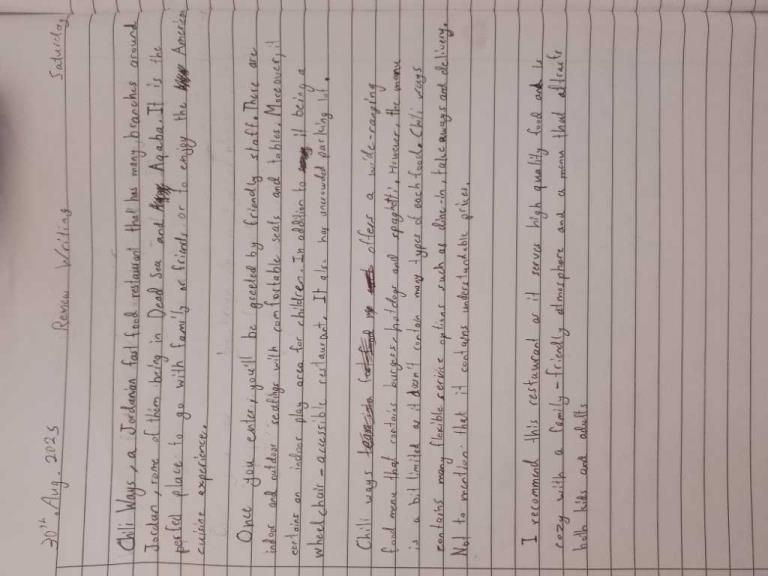 30th. Aug. 2025 Review Writing Saturday
Chili Ways, a Jordanian fast food restaurant that has many branches around
Jordan, some of them being in Dead Sea and Aqaba. It is the
perfect place to go with family or friends or to enjoy the American
cuisine experience.
Once you enter, you'll be greeted by friendly staff. There are
indoor and outdoor seatings with comfortable seats and tables. Moreover, it
contains an indoor play area for children. In addition to it being a
wheelchair-accessible restaurant. It also has uncrowded parking lot.
Chili ways offers a wide-ranging
food menu that contains burgers, hotdogs and spaghetti. However, the menu
is a bit limited as it doesn't contain many types of each food. Chili ways
contains many flexible service options such as dine-in, takeaways and delivery.
Not to mention that it contains understandable prices.
I recommend this restaurant as it serves high quality food and is
cozy with a family-friendly atmosphere and a menu that attracts
both kids and adults